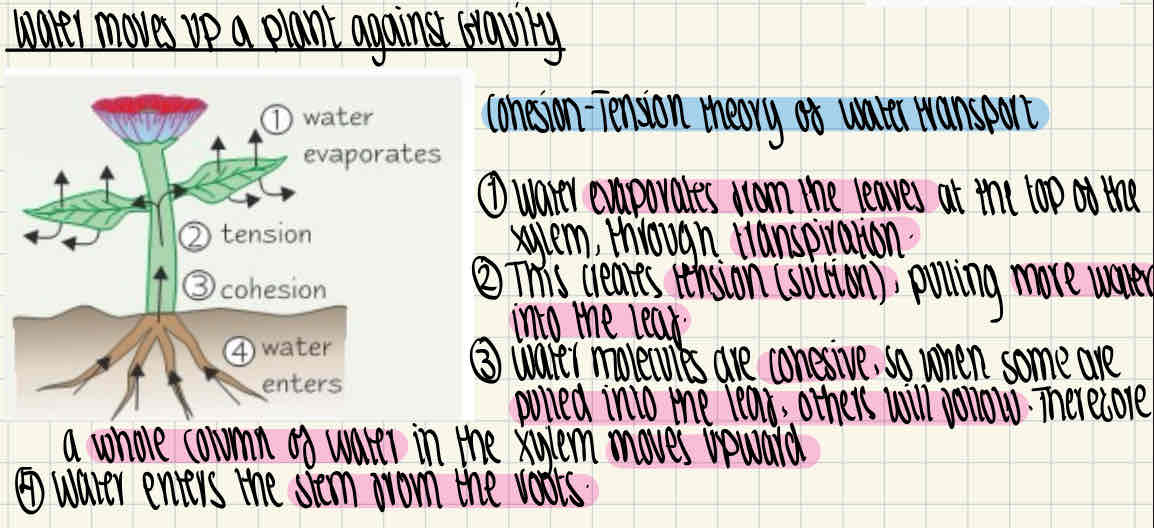 Water moves up a plant against gravity
① water
evaporates
② tension
③ cohesion
④ water
enters
Cohesion-Tension theory of water transport
① Water evaporates from the leaves at the top of the
xylem, through transpiration.
② This creates tension (suction), pulling more water
into the leaf.
③ Water molecules are cohesive, so when some are
pulled into the leaf, others will follow. Therefore
a whole column of water in the xylem moves upward
④ Water enters the stem from the roots.